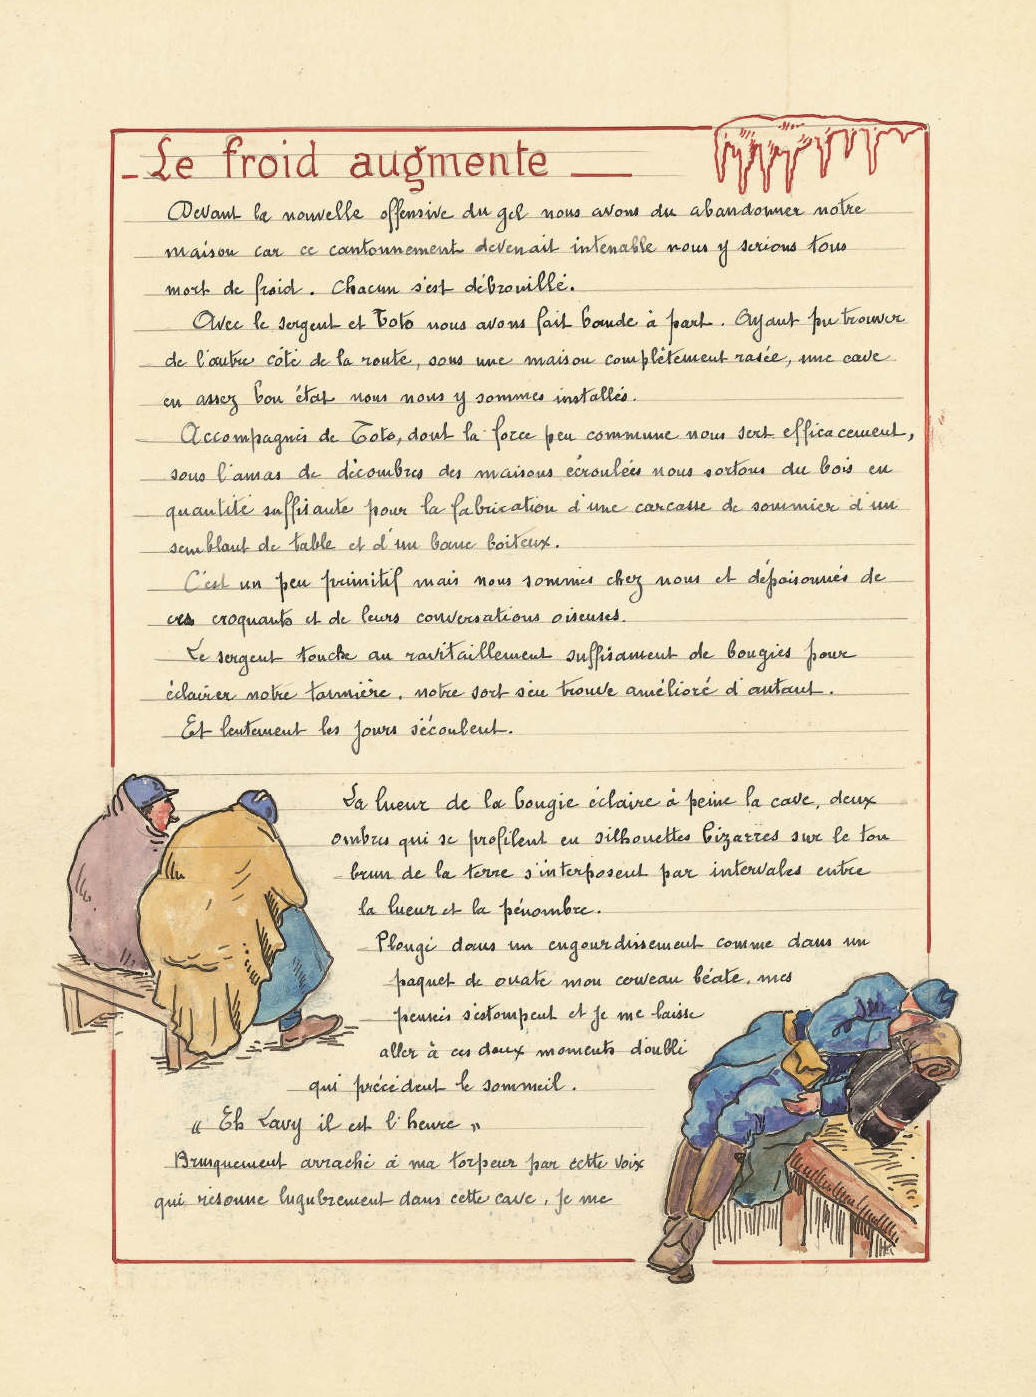 Le froid augmente
Devant la nouvelle offensive du gel nous avons du abandonner notre
maison car ce cantonnement devenait intenable nous y serions tous
mort de froid. Chacun s'est débrouillé.
Avec le sergent et Toto nous avons fait bande à part. Ayant pu trouver
de l'autre côté de la route, sous une maison complètement rasée, une cave
en assez bon état nous nous y sommes installés.
Accompagnés de Toto, dont la force peu commune nous sert efficacement,
sous l'amas de décombres des maisons écroulées nous sortons du bois en
quantité suffisante pour la fabrication d'une carcasse de sommier d'un
semblant de table et d'un banc boiteux.
C'est un peu primitif mais nous sommes chez nous et dépoisonnés de
ces croquants et de leurs conversations oiseuses.
Le sergent touche au ravitaillement suffisament de bougies pour
éclairer notre tannière, notre sort s'en trouve amélioré d'autant.
Et lentement les jours s'écoulent.
La lueur de la bougie éclaire à peine la cave, deux
ombres qui se profilent en silhouettes bizarres sur le ton
brun de la terre s'interposent par intervales entre
la lueur et la pénombre.
Plongé dans un engourdissement comme dans un
paquet de ouate mon cerveau béate, mes
pensées s'estompent et je me laisse
aller à ces doux moments d'oubli
qui précèdent le sommeil.
" Eh Lavy il est l'heure "
Brusquement arraché à ma torpeur par cette voix
qui résonne lugubrement dans cette cave, je me